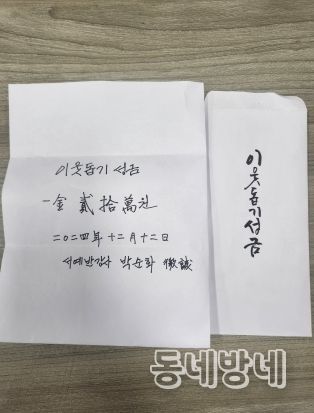 이웃돕기 성금
一金 貳拾萬원
二○二四年 十二月 十二日
서예반강사 박순화 微誠
이웃돕기성금
동네방네